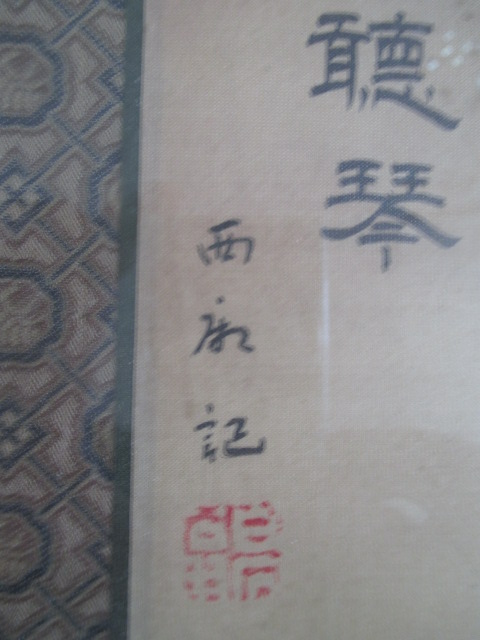 聽琴
西廠記